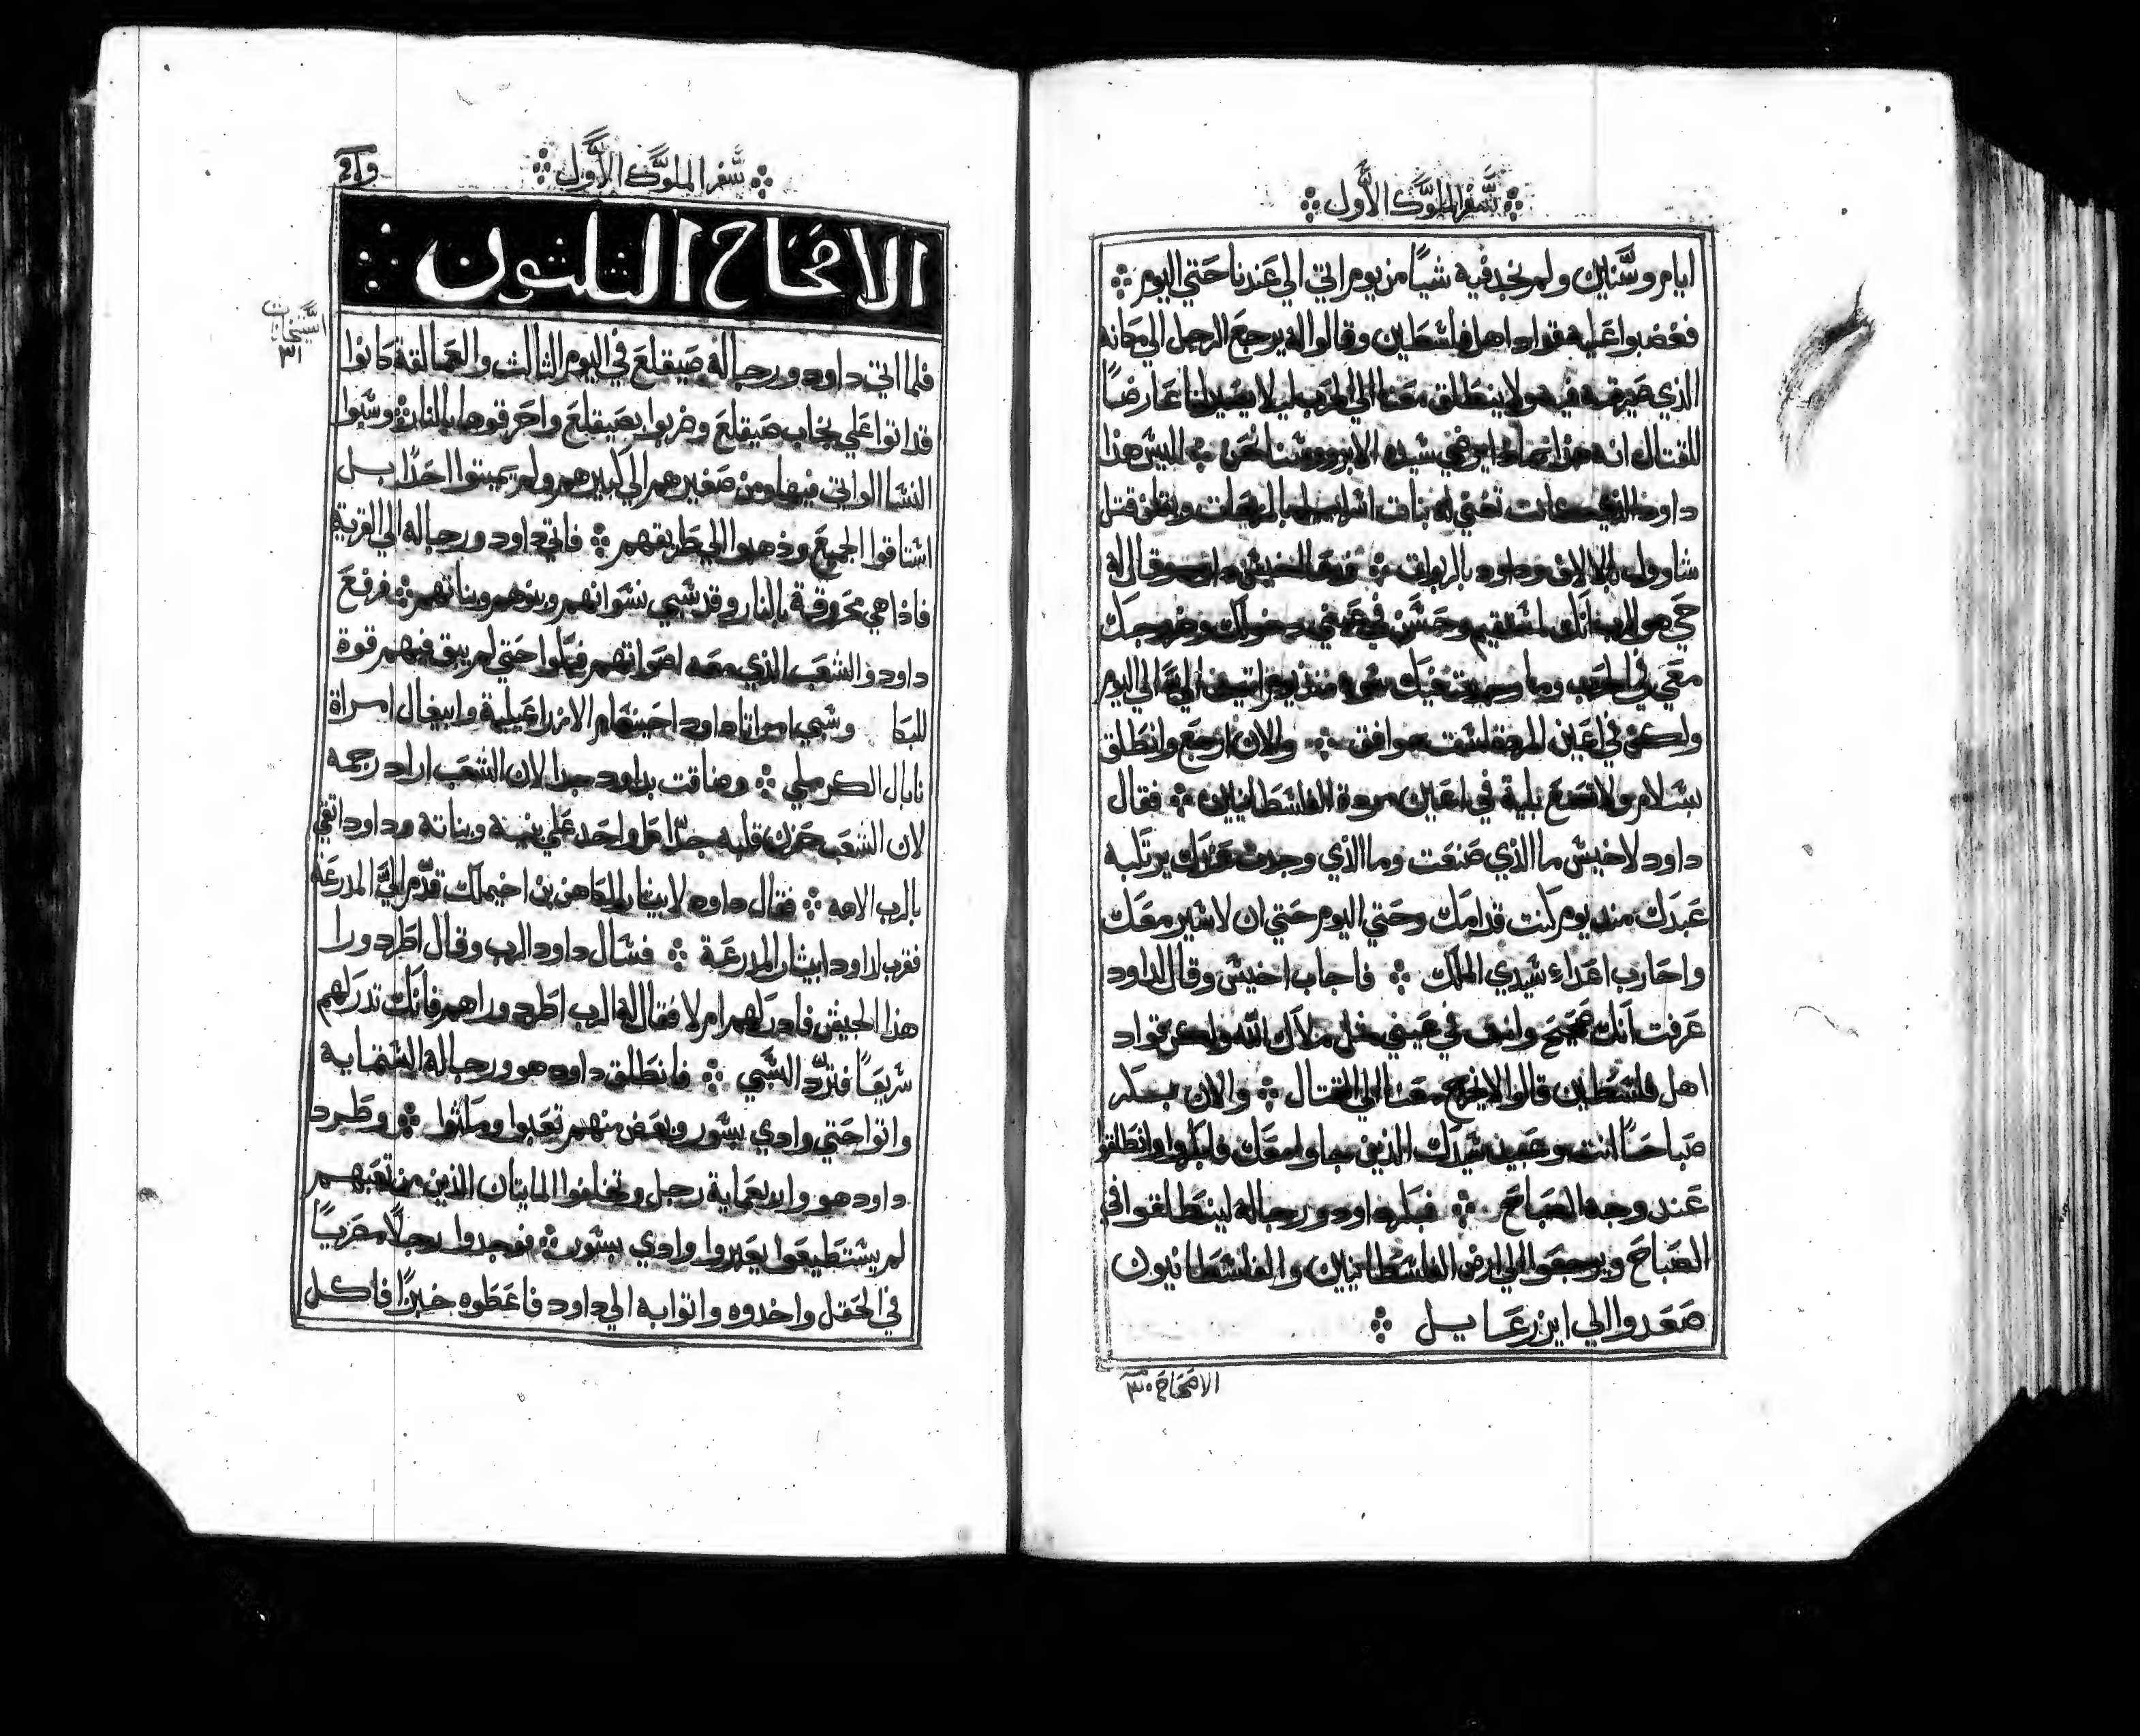 سفر الملوك الأول
ايام وسنين ولم نجد فيه شيًا من يوم اتي الي عندنا حتي اليوم
فغضبوا عليه قواد اهل فلسطين وقالوا له يرجع الرجل الي مكانه
الذي صيرته فيه ولا ينطلق معنا الي الحرب ليلا يصير لنا عارضًا
للقتال انه هذا يرضي سيده الا برووسنا نحن اليس هذا
داود الذي كانت تغني له بنات اسراييل وتقلن قتل
شاوول بالالاف وداود بالربوات فدعا اخيش داود وقال له
حي هو الرب انك مستقيم وحسن في عيني دخولك وخروجك
معي في الحرب وما وجدت عليك سو منذ يوم اتيت الي الي اليوم
ولكن في اعين المردة لست موافق والان ارجع وانطلق
بسلام ولا تصنع بلية في اعين مردة الفلسطانيين فقال
داود لاخيش ما الذي صنعت وما الذي وجدت
عبدك مند يوم كنت قدامك وحتي اليوم حتي ان لا اسير معك
واحارب اعداء سيدي الملك فاجاب اخيش وقال لداود
عرفت انك صحيح وانت في عيني مثل ملاك الله ولكن قواد
اهل فلسطين قالوا لا يخرج معنا الي القتال والان بكر
صباحًا انت وعبيد سيدك الذين جاوا معك فابكروا وانطلقوا
عند وجه الصباح فبكر داود ورجاله لينطلقوا في
الصباح ويرجعوا الي ارض الفلسطانيين والفلسطانيون
صعدوا الي ايزرعايل
الاصحاح ٣٠
سفر الملوك الأول
الاصحاح الثلثون
٣١
فلما اتي داود ورجاله صيقلع في اليوم الثالث والعمالقة كانوا
قد اتوا علي صيقلع وضربوا بصيقلع واحرقوها بالنار وسبوا
النسا اللواتي فيها ومن صغيرهم الي كبيرهم ولم يميتوا احدًا بل
استاقوا الجميع وذهبوا الي طريقهم فاتي داود ورجاله الي القرية
فاذا هي محروقة بالنار وقد سبي نسوانهم وبنوهم وبناتهم فرفع
داود والشعب الذي معه اصواتهم فبكوا حتي لم يبق فيهم قوة
للبكا وسبي امراتا داود احينعام الازراعيلية وابيغال امراة
نابال الكرملي وضاقت بداود جدا لان الشعب اراد رجمه
لان الشعب حزن قلبه جدًا كل واحد علي بنيه وبناته وداود اتقي
بالرب الاهه فقال داود لابيتار الكاهن بن اخيملك قدّم اليَّ المدرعة
فقرب لداود ابيتار المدرعة فسال داود الرب وقال اطرد ورا
هذا الجيش فادركهم ام لا فقال له الرب اطرد وراهم فانك تدركهم
سريعًا فتردّ السبي فانطلق داود هو ورجاله الستماية
واتوا حتي وادي بسور وبعض منهم تعبوا ومكثوا وطرد
داود هو واربعماية رجل وتخلفوا المايتان الذين من تعبهم
لم يستطيعوا يعبروا وادي بسور فوجدوا رجلًا مصريًا
في الحقل واخدوه واتوا به الي داود فاعطوه خبزًا فاكل